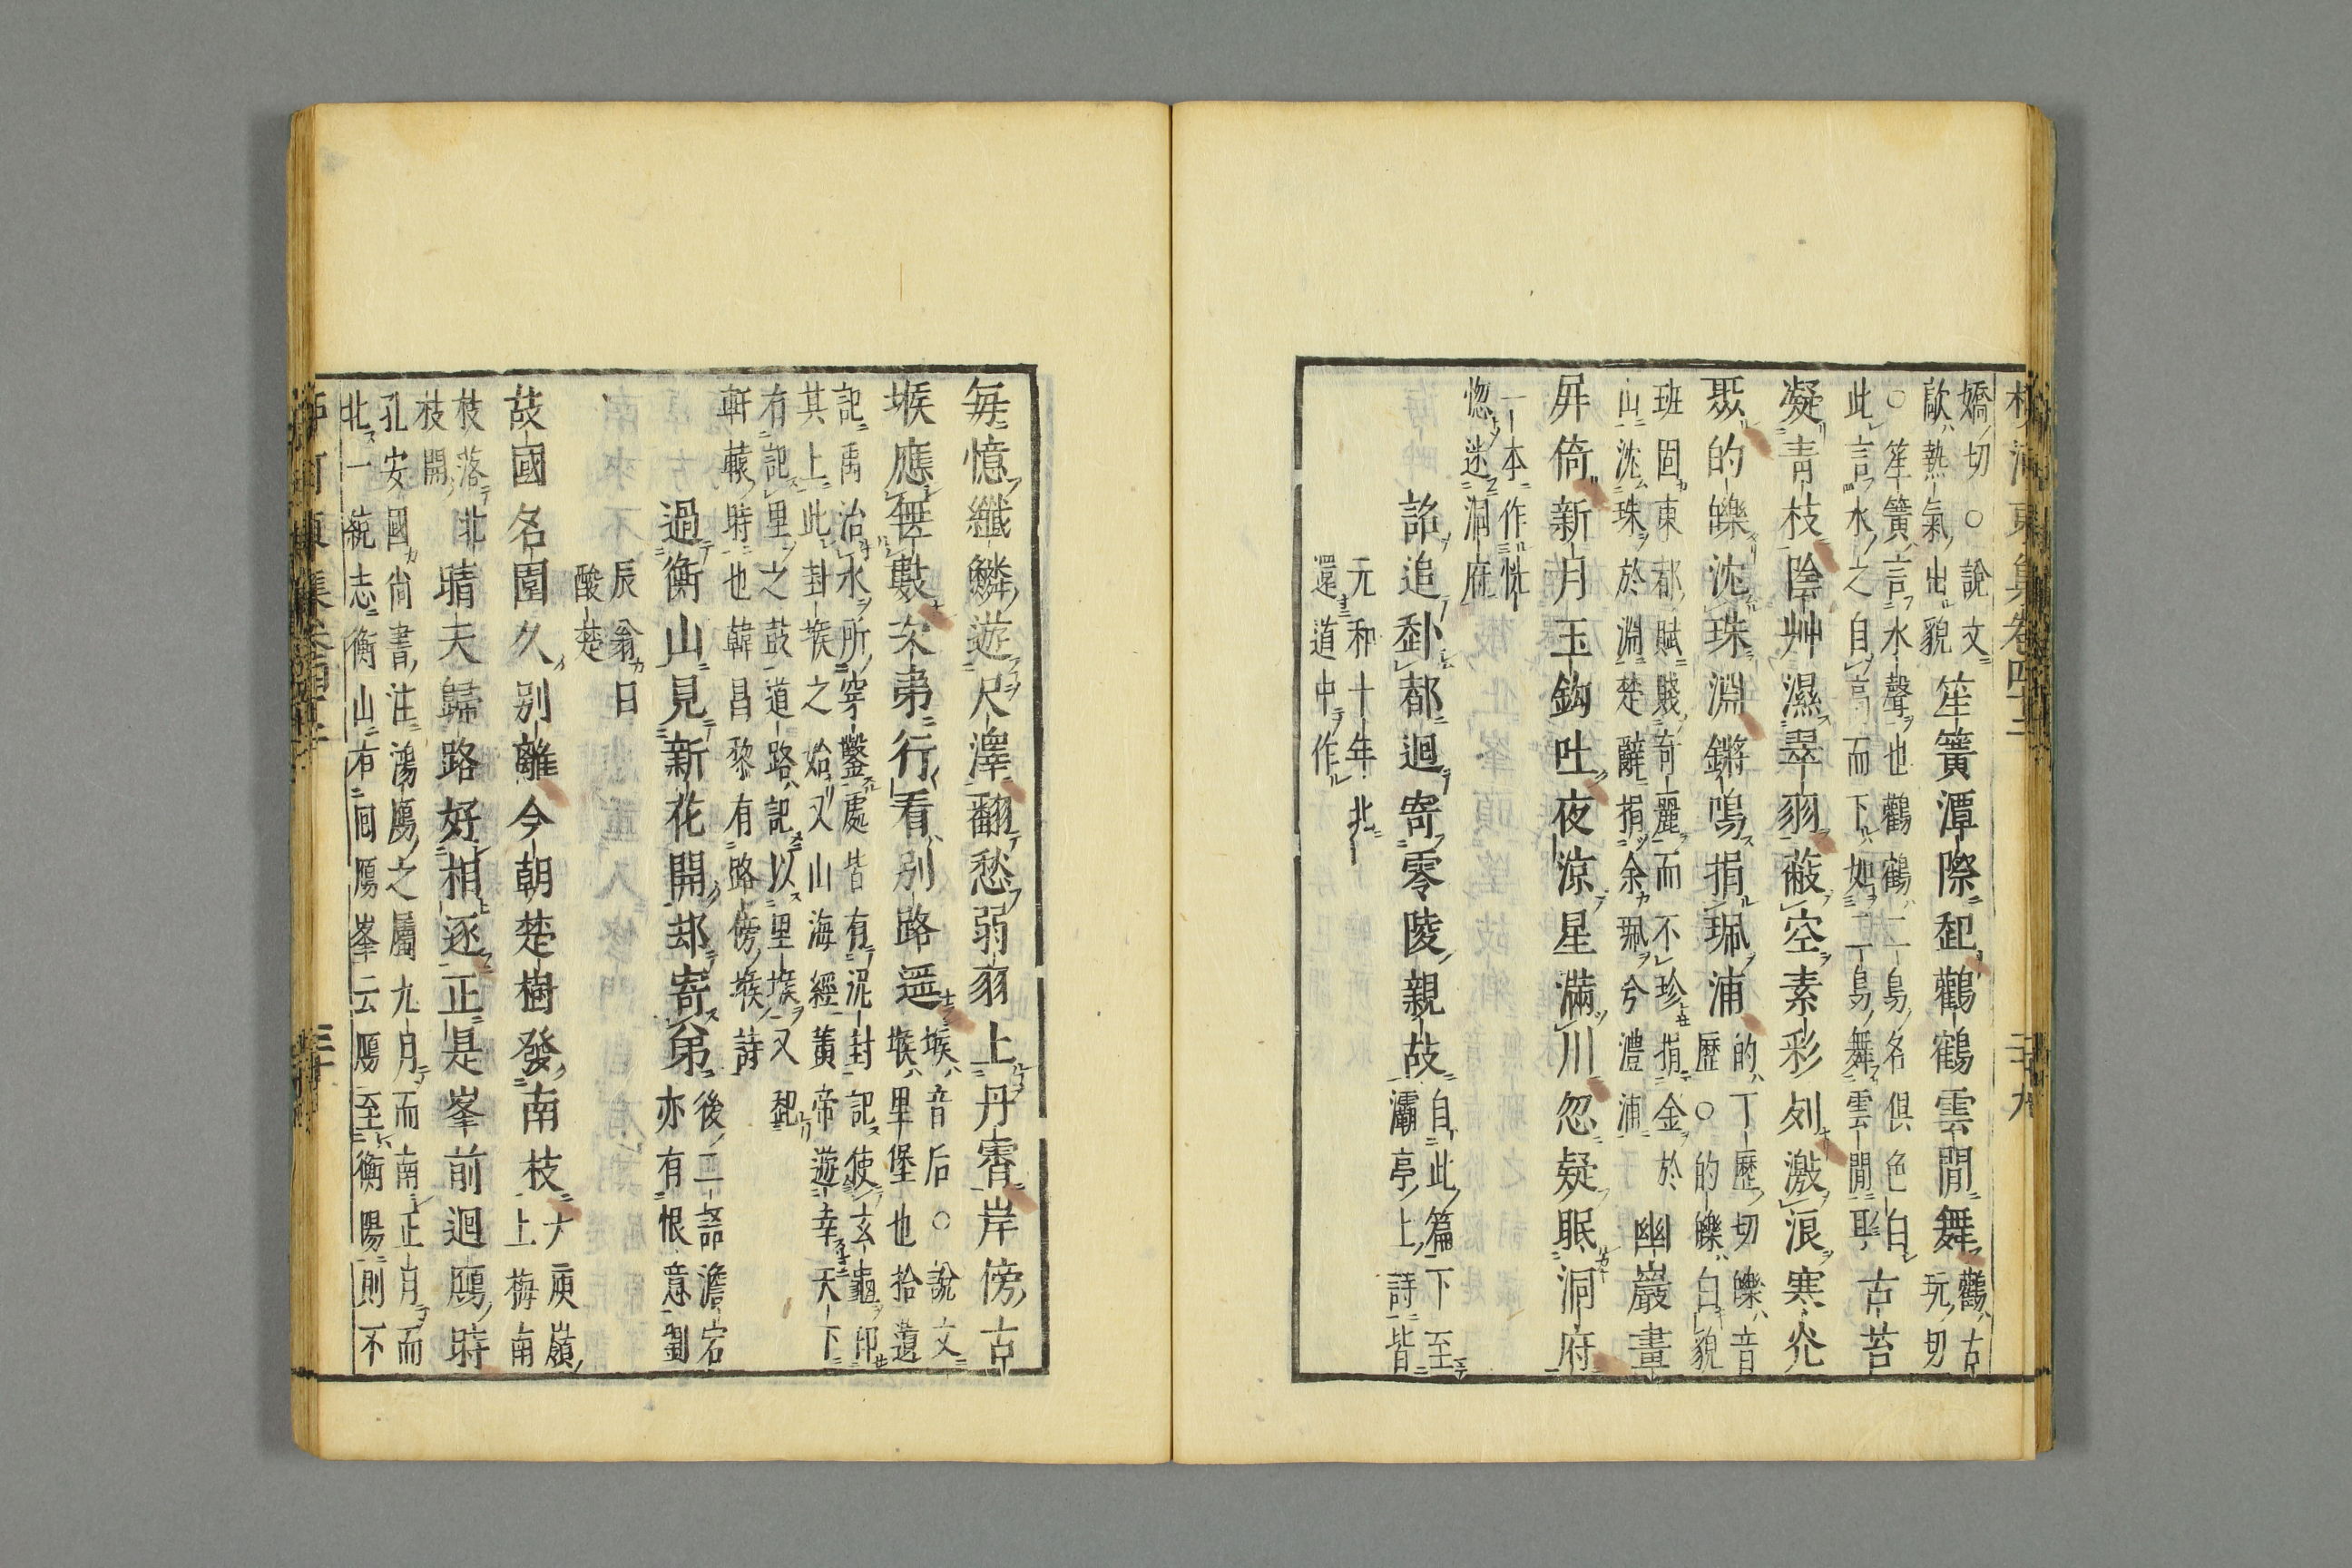 河東集卷四十二　二十九
嬌切○說文
歊熱氣出貌
笙簧潭際起鸛鶴雲間舞
鸛古
玩切
○笙簧言水聲也鸛鶴二鳥名俱色白
此言水之自高而下如二鳥舞雲間耳
古苔
凝青枝陰艸濕翠羽蔽空素彩列激浪寒光
聚的皪沈珠淵鏘鳴捐珮浦
的丁歷切皪音
歷○的皪白貌
班固東都賦賤奇麗而不珍捐金於
山沈珠於淵楚辭捐余珮兮澧浦
幽巖畫
屏倚新月玉鈎吐夜涼星滿川忽疑眠洞府
一本作恍
惚迷洞府
詔追赴都迴寄零陵親故
自此篇下至
灞亭上詩皆
元和十年北
還道中作
每憶纖鱗遊尺澤翻愁弱羽上丹霄岸傍古
堠應無數次第行看別路遥
堠音后○說文
堠里堡也拾遺
記禹治水所穿鑿處皆有泥封記使玄龜印
其上此封堠之始又山海經黃帝遊幸天下
有記里之鼓道路記以里堠又起
軒轅時也韓昌黎有路傍堠詩
過衡山見新花開却寄弟
後二語澹宕
亦有恨意劉
辰翁曰
酸楚
故國名園久別離今朝楚樹發南枝
大庾嶺
上梅南
枝落北
枝開
晴天歸路好相逐正是峯前迴鴈時
孔安國尚書注鴻鴈之屬九月而南正月而
北一統志衡山有回鴈峯云鴈至衡陽則不